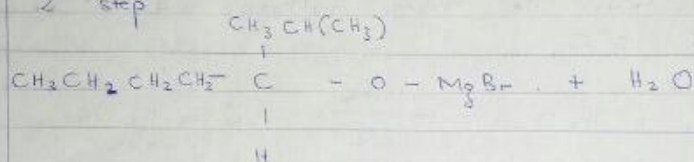 2 step
CH3 CH(CH3)
CH3CH2 CH2CH2- C - O - MgBr. + H2O
H